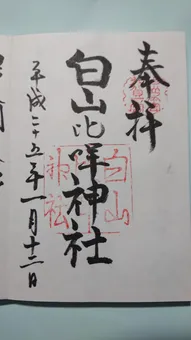 奉拝
白山比咩神社
白山
神社
平成二十五年一月十二日